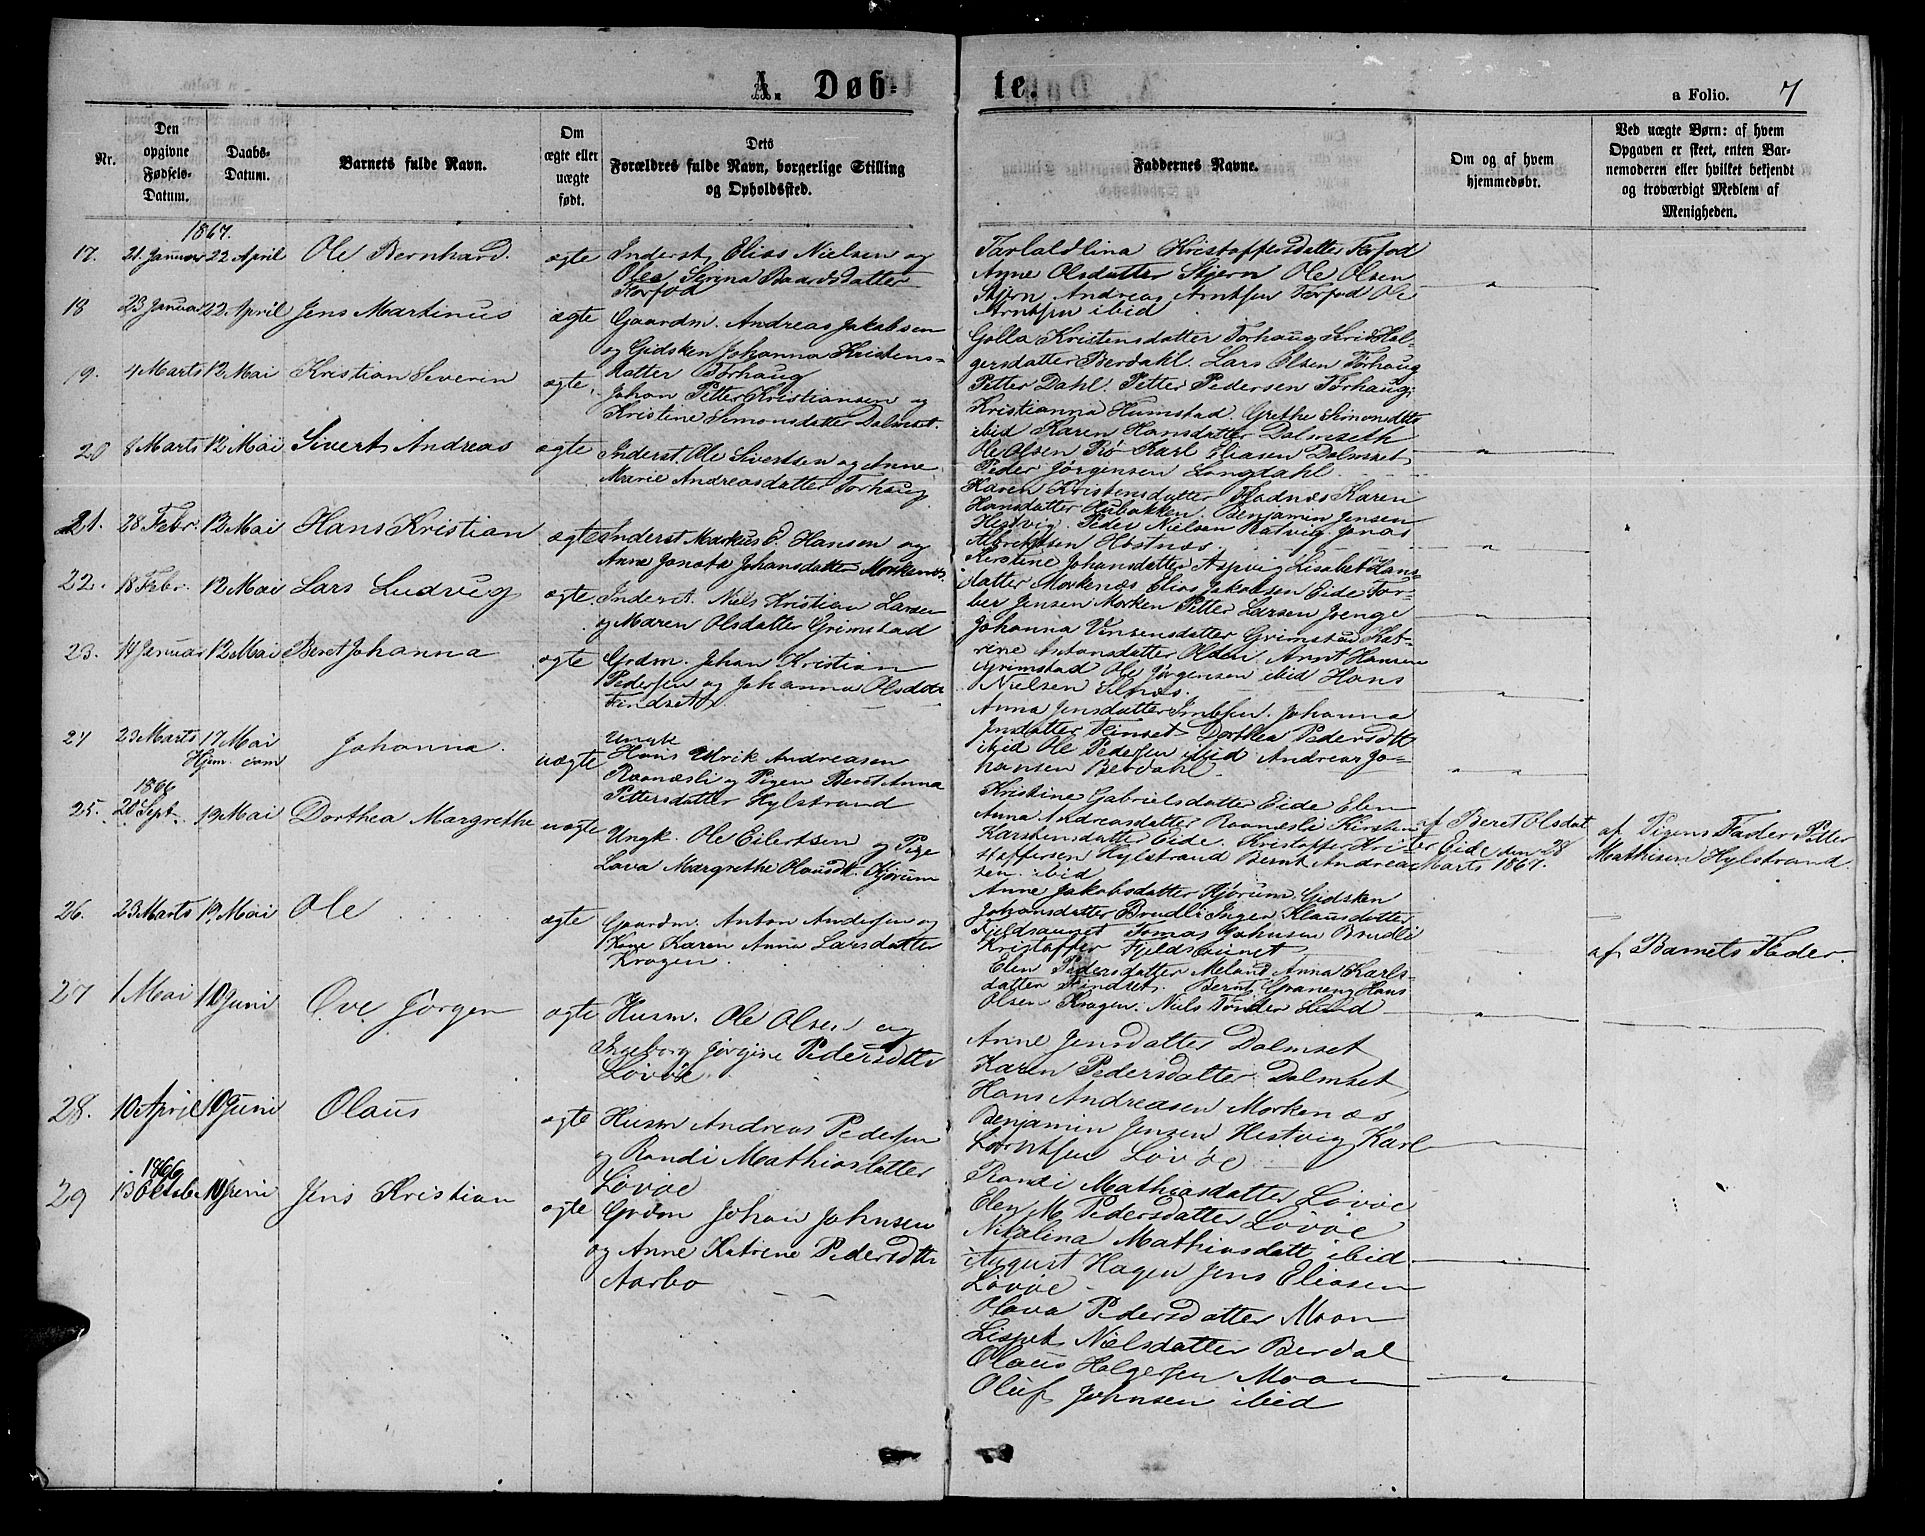 A. Døbte.
a Folio. 7
Nr.
Den opgivne Fødsels-Datum.
Daabs-Datum.
Barnets fulde Navn.
Om ægte eller uægte født.
Dets Forældres fulde Navn, borgerlige Stilling og Opholdssted.
Faddernes Navne.
Om og af hvem hjemmedøbt.
Ved uægte Børn: af hvem Opgaven er skeet, enten Barnemoderen eller hvilket bekjendt og troværdigt Medlem af Menigheden.
1867.
17. 21. Januar 22 April Ole Bernhard. ægte Inderst Elias Nielsen og
Olea Serina Baardsdatter
Forfod
Kristoffersdatter Forfod
Anne Olsdatter Stjern Ole Olsen
Stjern Andreas Arntsen Forfod Ole
Arntsen ibid
18 23 Januar 22 April Jens Martinus ægte Gaardm. Andreas Jakobsen
og Gidsken Johanna Kristens-
datter Torhaug
Golla Kristensdatter Torhaug
gersdatter Berdahl. Lars Olsen Torhaug
Petter Dahl. Petter Pedersen Torhaug
19. 4 Marts 12 Mai Kristian Severin ægte. Johan Petter Kristiansen og
Kristine Simonsdatter Dalmset.
Kristianna Humstad. Grethe Simonsdtt
ibid Karen Hansdatter Dalmseth
Ole Olsen Rø Karl Eliasen Dalmset
Peder Jørgensen Langdahl
20 8 Marts 12 Mai Sivert Andreas ægte Inderst. Ole Sivertsen og Anne
Marie Andreasdatter Torhaug
Karen Kristensdatter Hadnæs Karen
Hansdatter Benjamin Jensen
Hestvig. Peder Nielsen Ratvig Jonas
Albrektsen Hostnæs
21. 28 Febr. 12 Mai Hans Kristian ægte Inderst Markus E. Hansen og
Anne Jonata Johansdatter Morkenæs.
Kirstine Johansdatter Aspvig Lisabet Hans-
datter Morkenæs Elias Jakobsen Eide Tor-
ber Jensen Morken Petter Larsen
22. 18 Febr. 12 Mai Lars Ludvig ægte, Inderst. Niels Kristian Larsen
og Maren Olsdatter Grimstad
Johanna Vinsensdatter Grimstad Kat-
rine Antonsdatter Olden Arnt Hansen
Grimstad Ole Jørgensen ibid Hans
Nielsen Selnæs.
23. 14 Januar 12 Mai Beret Johanna ægte Grdm. Johan Kristian
Pedersen og Johanna Olsdatter
Findset
Anna Jensdatter Johanna
Jensdatter Finset Dorthea Pedersdtt
ibid Ole Pedersen ibid Andreas Jo-
hansen Berdahl.
24 23 Marts 17 Mai
Hjem.
Johanna. uægte Ungk
Hans Ulrik Andreasen
Raanæsli og Pigen Beret Anna
Pettersdatter Hylstrand
Kristine Gabrielsdatter Eide Elen
Anna Andreasdatter Raanæsli Kirsten
Karstensdatter Eide. Kristoffer Krist-
toffersen Hylstrand Bernt Andreas
sen. ibid
af Beret Olsdat
ter Eide den 28
Marts 1867.
af Pigens Fader Petter
Mathisen Hylstrand.
1866
25. 20 Sept. 19 Mai Dorthea Margrethe uægte Ungk. Ole Eilertsen og Pige
Lava Margrethe Olausdt. Kjørum
Anne Jakobsdatter Kjørum Gidsken
Johansdatter Brudli Inger Klausdatter
Fjeldsaunet Tomas Johnsen Brudli
Kristoffer Fjeldsaunet
af Barnets Fader.
26. 23 Marts 19 Mai Ole ægte Gaardm. Anton Andersen og
Kone Karen Anna Larsdatter
Kragen.
Elen Pedersdatter Meland Anna Karls-
datter Findset. Bernt Graneng Hans
Olsen Kragen. Niels Tønder Lund
27 1 Mai 10 Juni Ove Jørgen ægte Husm. Ole Olsen og
Ingeborg Jørgine Pedersdatter
Løvøe.
Anne Jensdatter Dalmset
Karen Pedersdatter Dalmset
Hans Andreasen Morkenæs
Benjamin Jensen Hestvig Karl
Lorntsen Løvøe
28. 10 April 10 Juni Olaus ægte Husm Andreas Pedersen
og Randi Mathiasdatter
Løvøe
Randi Mathiasdatter Løvøe
Elen M. Pedersdatter Løvøe
Nikolina Mathiasdatt ibid
August Hagen Jens Eliasen
Løvøe
1866
29 13 Oktober 10 Juni Jens Kristian ægte Grdm Johan Johnsen
og Anne Katrine Pedersdtr
Aarbo
Olava Pedersdatter Moan
Lisbet Nielsdatter Berdal
Olaus Holgersen Moan
Oluf Johnsen ibid